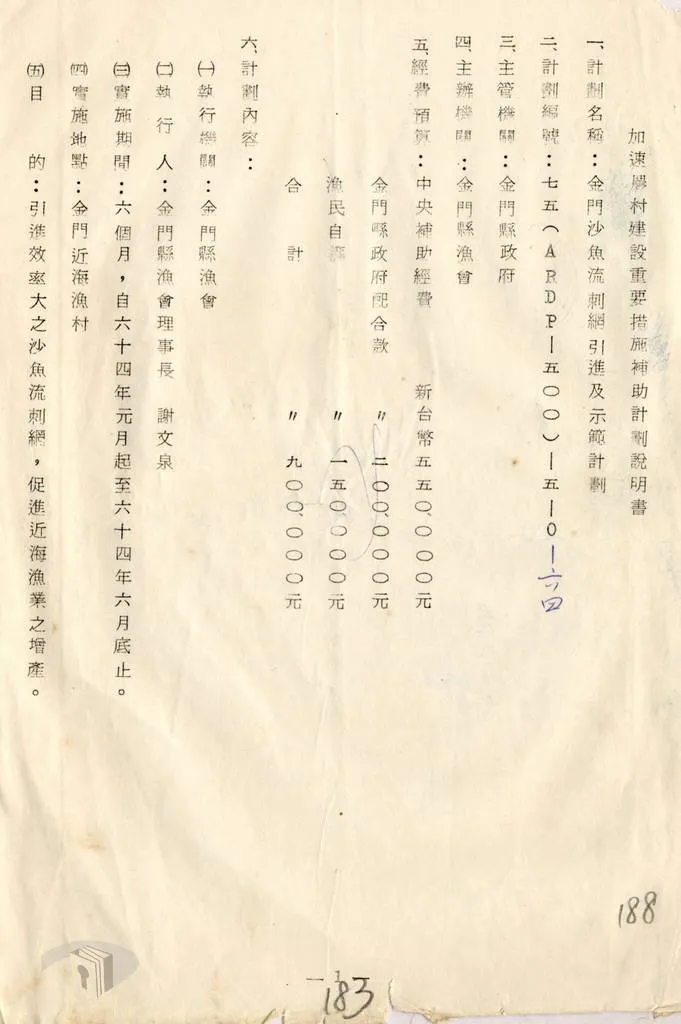 加速農村建設重要措施補助計劃說明書
一、計劃名稱：金門沙魚流刺網引進及示範計劃
二、計劃編號：七五（ARDP－五〇〇）－五－0－六四
三、主管機關：金門縣政府
四、主辦機關：金門縣漁會
五、經費預算：中央補助經費 新台幣五五〇、〇〇〇元
金門縣政府配合款 〃 二〇〇、〇〇〇元
漁民自籌 〃 一五〇、〇〇〇元
合計 〃 九〇〇、〇〇〇元
六、計劃內容：
㈠執行機關：金門縣漁會
㈡執行人：金門縣漁會理事長 謝文泉
㈢實施期間：六個月，自六十四年元月起至六十四年六月底止。
㈣實施地點：金門近海漁村
㈤目的：引進效率大之沙魚流刺網，促進近海漁業之增產。
188
— 1 —
183